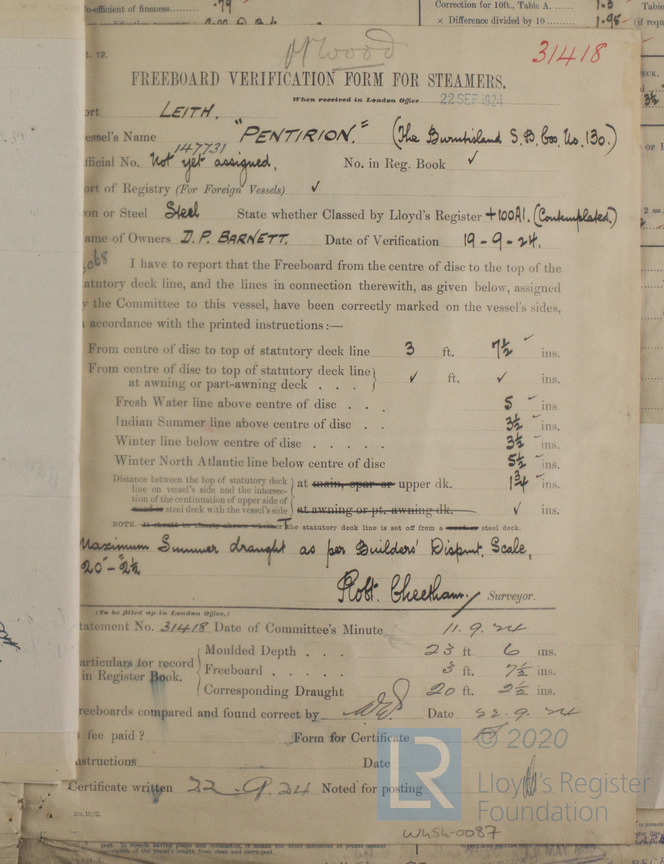 o-efficient of fineness........ .79
Correction for 10ft., Table A. ...... 1.5
× Difference divided by 10 ....... 1.95
31418
FREEBOARD VERIFICATION FORM FOR STEAMERS.
When received in London Office 22 SEP 1924
ort LEITH.
essel's Name "PENTIRION." (The Burntisland S.B. Cos. No. 130.)
147731
fficial No. Not yet assigned, No. in Reg. Book ✓
ort of Registry (For Foreign Vessels) ✓
on or Steel Steel State whether Classed by Lloyd's Register +100A1. (Contemplated.)
ame of Owners D.P. BARNETT. Date of Verification 19-9-24.
I have to report that the Freeboard from the centre of disc to the top of the
atutory deck line, and the lines in connection therewith, as given below, assigned
y the Committee to this vessel, have been correctly marked on the vessel's sides,
accordance with the printed instructions :—
From centre of disc to top of statutory deck line 3 ft. 7½ ins.
From centre of disc to top of statutory deck line
at awning or part-awning deck . . . ✓ ft. ✓ ins.
Fresh Water line above centre of disc . . . 5 ins
Indian Summer line above centre of disc . . 3½ ins.
Winter line below centre of disc . . . . . 3½ ins.
Winter North Atlantic line below centre of disc 5½ ins.
Distance between the top of statutory deck
line on vessel's side and the intersec-
tion of the continuation of upper side of
wood or steel deck with the vessel's side
at main, spar or upper dk. 1¾ ins.
at awning or pt. awning dk. ✓ ins.
NOTE. It should be clearly shown whether The statutory deck line is set off from a wood or steel deck.
Maximum Summer draught as per Builders' Displmt. Scale,
20'-2½"
Robt. Cheetham, Surveyor.
(To be filled up in London Office.)
tatement No. 31418 Date of Committee's Minute 11.9.24
articulars for record
in Register Book.
Moulded Depth . . . 23 ft 6 ins.
Freeboard . . . . . 3 ft. 7½ ins.
Corresponding Draught 20 ft. 2½ ins.
reeboards compared and found correct by Date 22.9.24
s fee paid ? Form for Certificate
nstructions Date
Certificate written 22.9.24 Noted for posting
LR © 2020
Lloyd's Register
Foundation
W464-0087